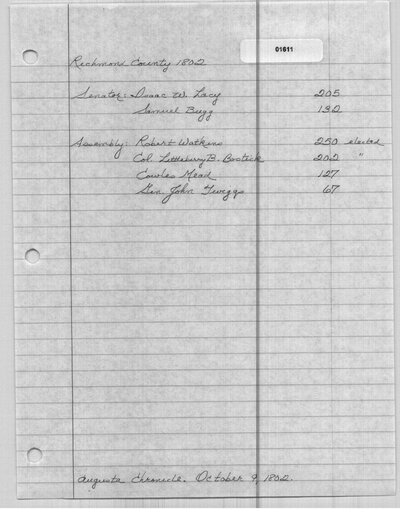 01611
Richmond County 1802
Senator: Isaac W. Lacy 205
Samuel Bugg 132
Assembly: Robert Watkins 250 elected
Col Littlebury B. Bostick 202 "
Cowles Mead 127
Gen John Twiggs 67
Augusta Chronicle. October 9, 1802.